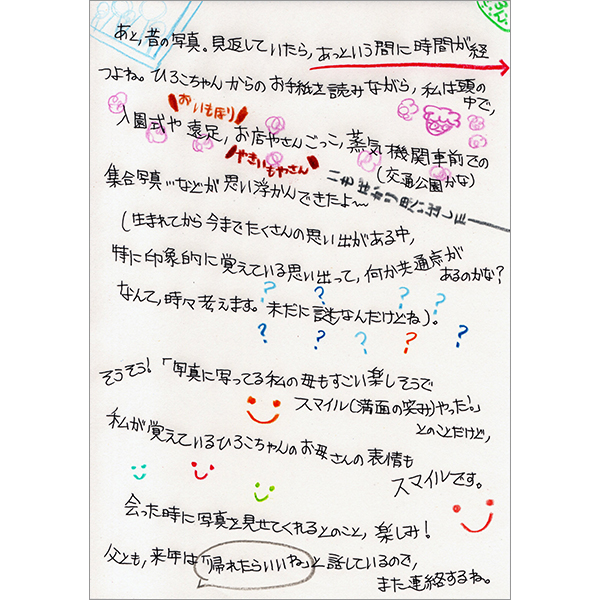 あと、昔の写真。見返していたら、あっという間に時間が経
つよね。ひろこちゃんからのお手紙を読みながら、私は頭の
中で、
おいもほり
入園式や遠足、お店やさんごっこ、蒸気機関車前での
やきいもやさん
(交通公園かな)
集合写真…などが思い浮かんできたよ〜
いもばかり思い出したー
(生まれてから今までたくさんの思い出がある中、
特に印象的に覚えている思い出って、何か共通点が
あるのかな?
なんて、時々考えます。未だに謎なんだけどね)。
? ? ? ?
? ? ? ? ?
そうそう!「写真に写ってる私の母もすごい楽しそうで
スマイル(満面の笑み)やった!。」
とのことだけど、
私が覚えているひろこちゃんのお母さんの表情も
スマイルです。
会った時に写真を見せてくれるとのこと、楽しみ!
父とも、来年は「帰れたらいいね」と話しているので、
また連絡するね。